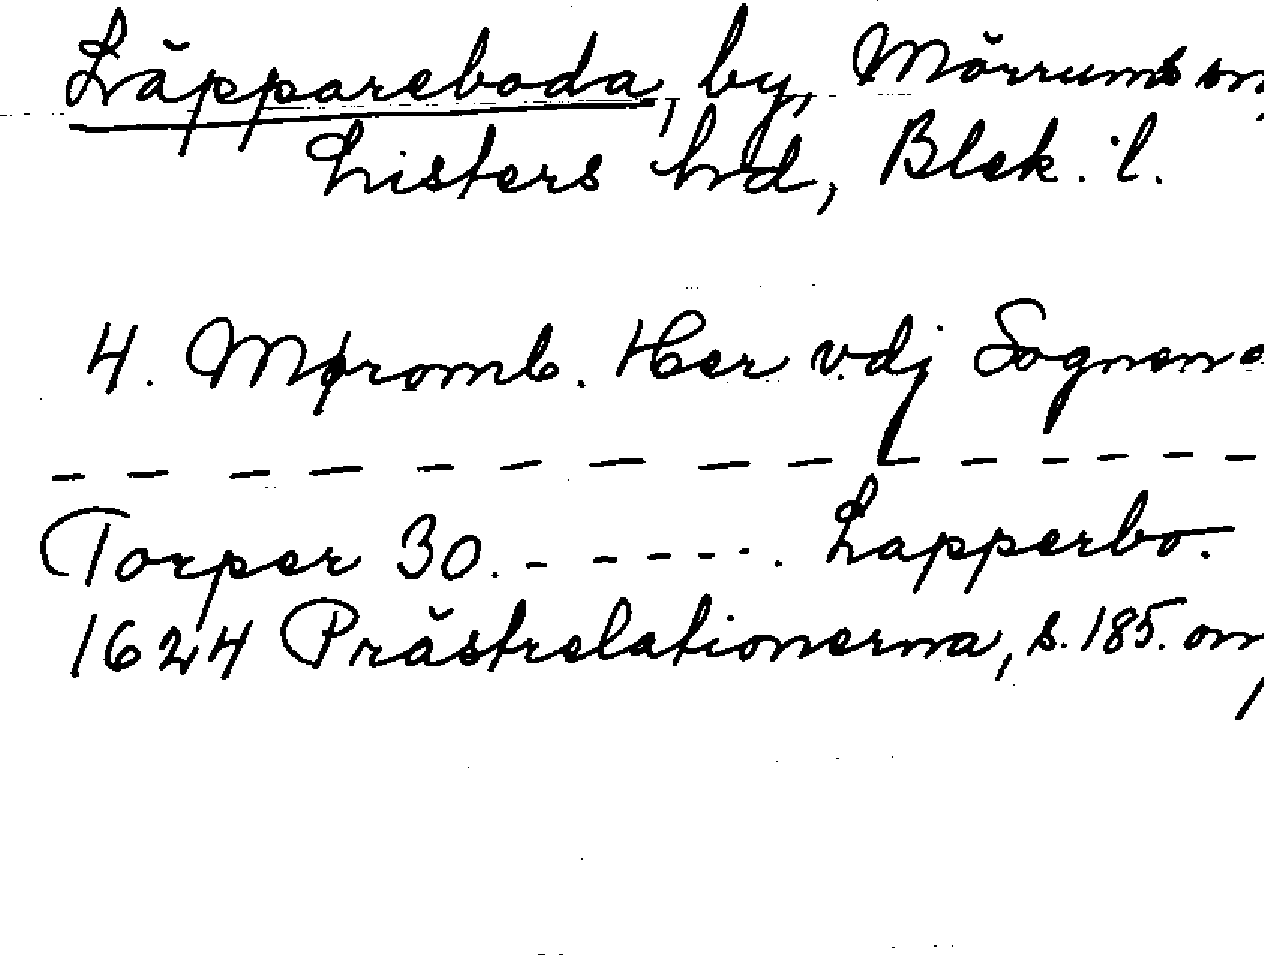 Läppareboda, by, Mörrums sn,
Listers hrd, Blek. l.
4. Møromb. Her vdj Sognene
— — — — — — — — — — — — — —
Torper 30. - - - - - . Lapperbo.
1624 Prästrelationerna, s. 185. om